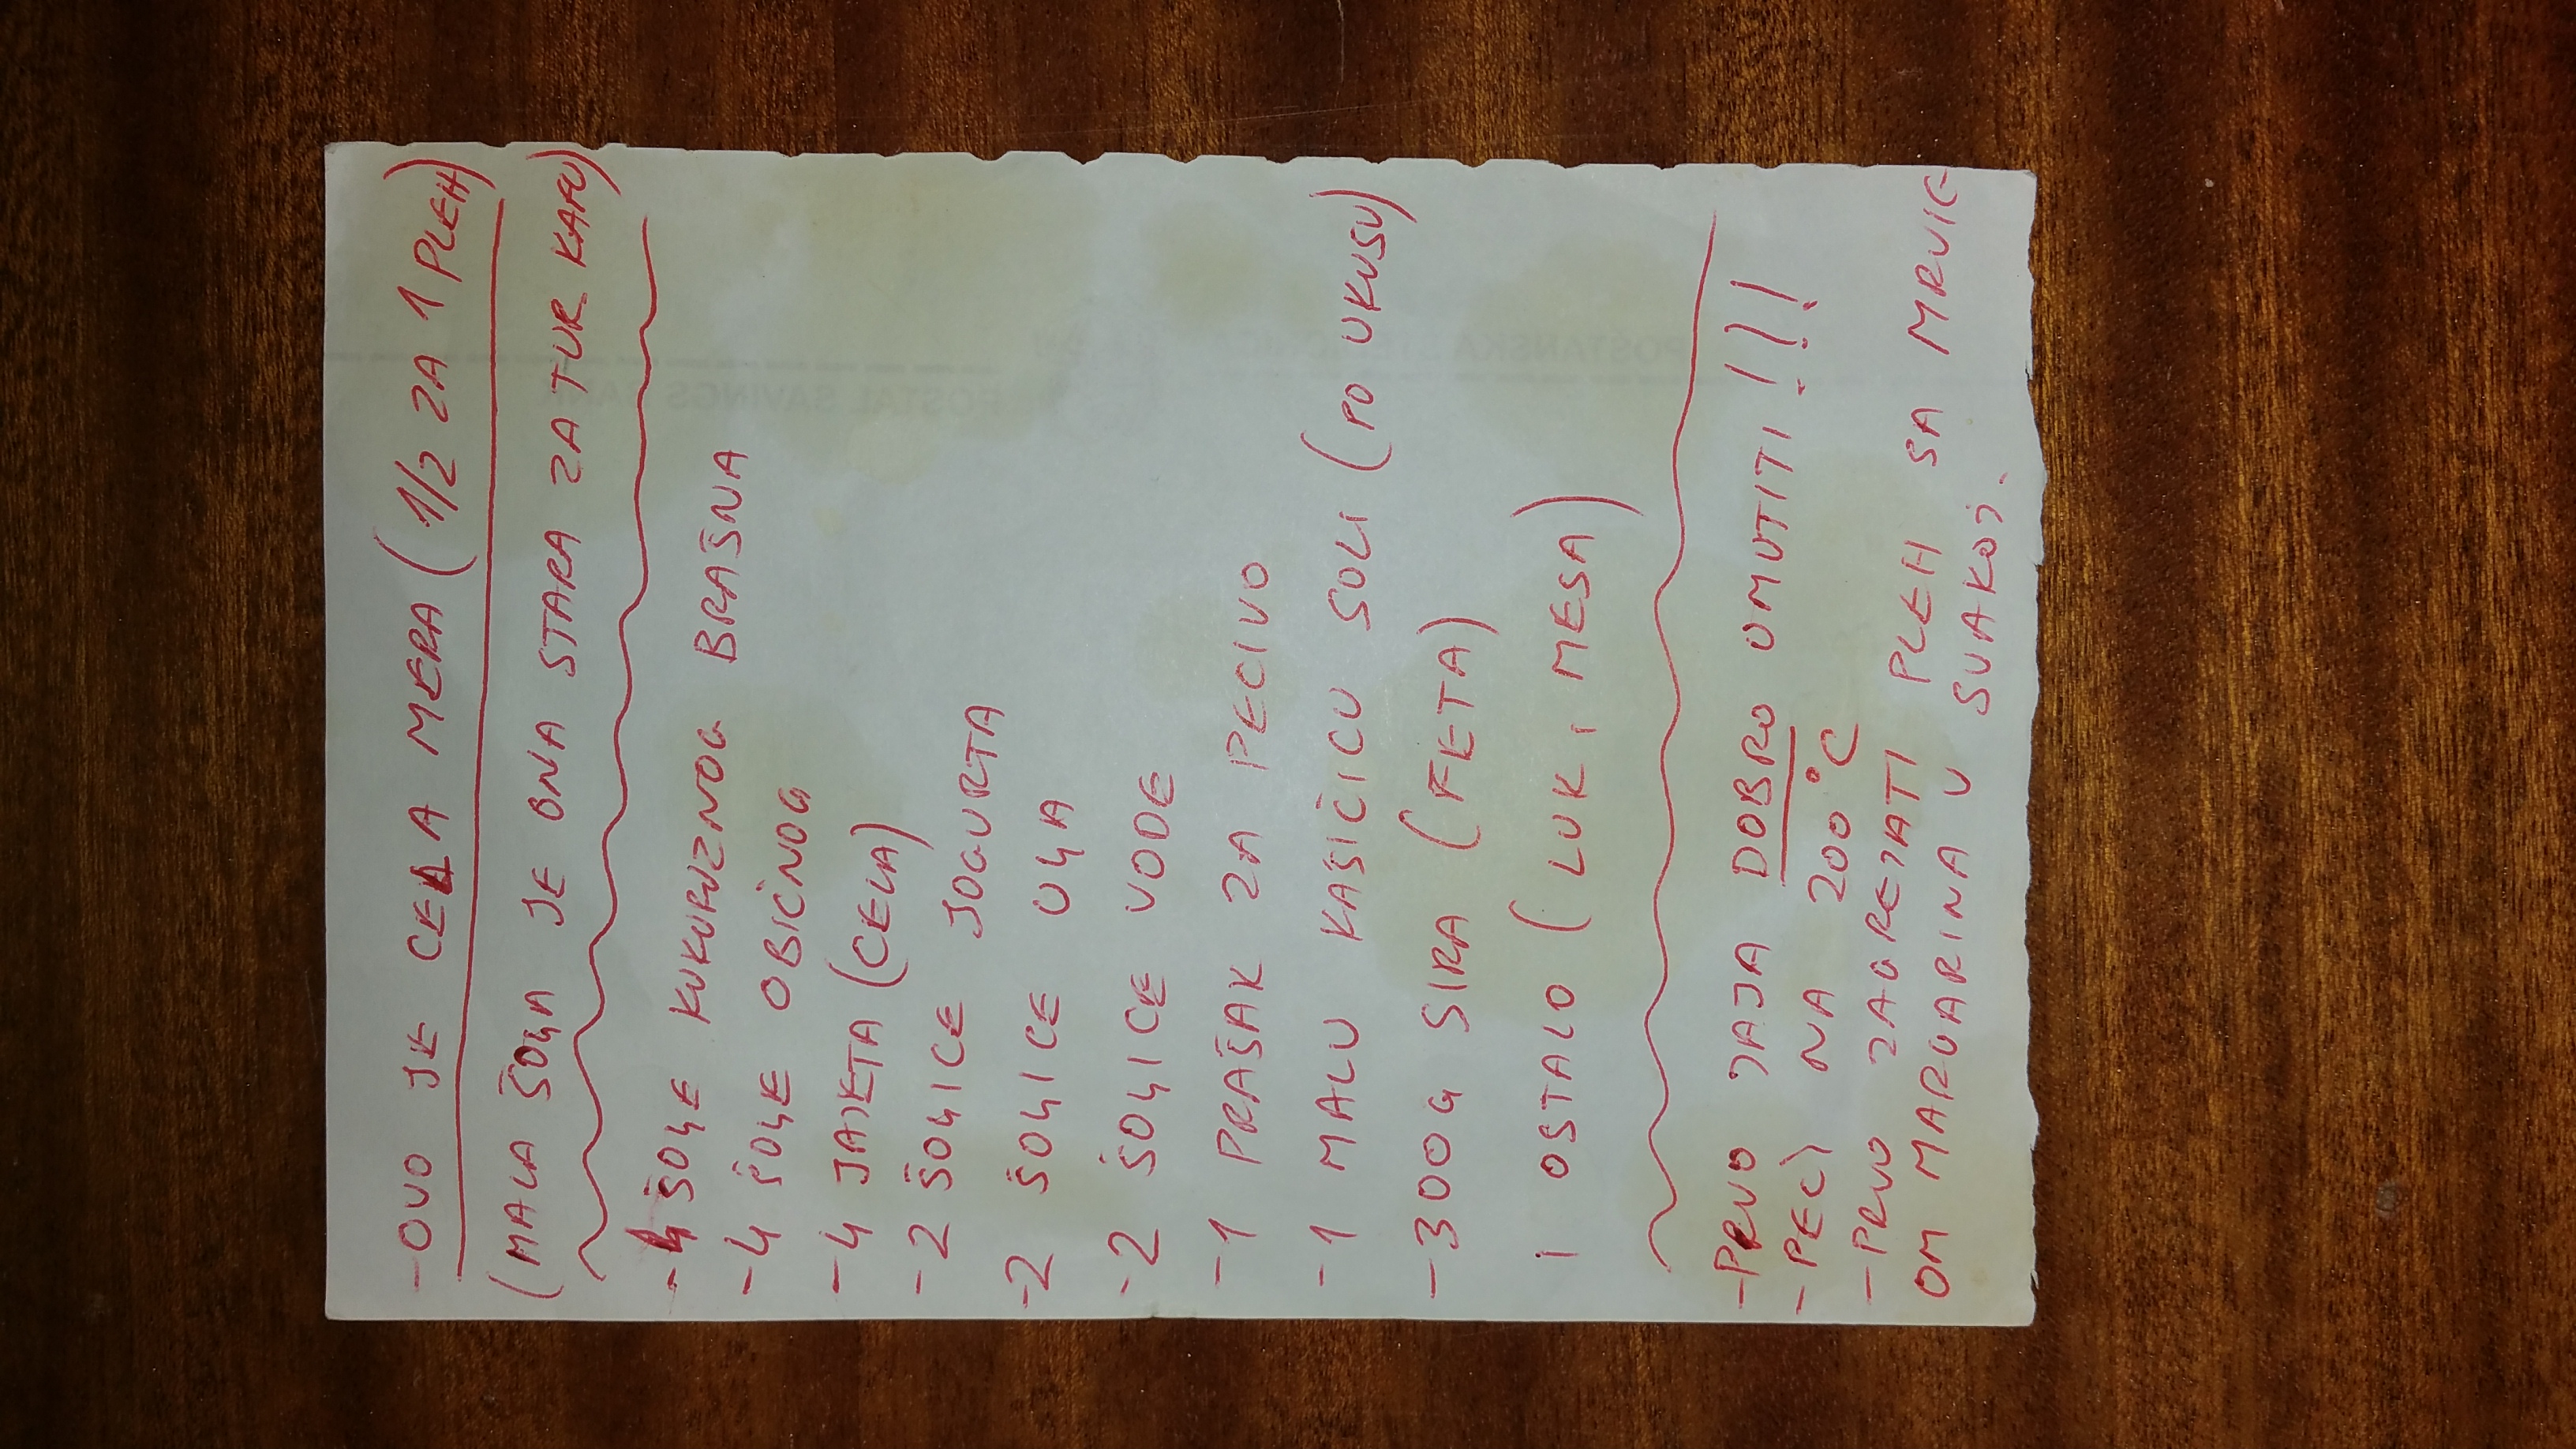 -OVO JE CELA MERA (1/2 ZA 1 PLEH)
(MALA ŠOLJA JE ONA STARA ZA TUR. KAFU)
-4 ŠOLJE KUKURUZNOG BRAŠNA
-4 ŠOLJE OBIČNOG
-4 JAJETA (CELA)
-2 ŠOLJICE JOGURTA
-2 ŠOLJICE ULJA
-2 ŠOLJICE VODE
-1 PRAŠAK ZA PECIVO
-1 MALU KAŠIČICU SOLI (PO UKUSU)
-300G SIRA (FETA)
I OSTALO (LUK, MESA)
-PRVO JAJA DOBRO UMUTITI!!!
-PEĆI NA 200°C
-PRVO ZAGREJATI PLEH SA MRVIC
OM MARGARINA U SVAKOJ.